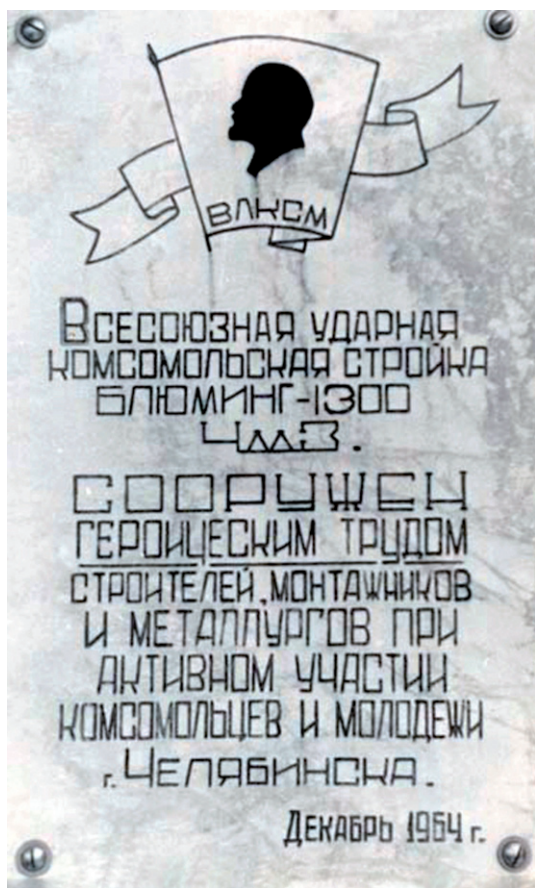 ВЛКСМ
Всесоюзная ударная
комсомольская стройка
блюминг-1300
ЧМЗ.
СООРУЖЕН
ГЕРОИЧЕСКИМ ТРУДОМ
СТРОИТЕЛЕЙ, МОНТАЖНИКОВ
И МЕТАЛЛУРГОВ ПРИ
АКТИВНОМ УЧАСТИИ
КОМСОМОЛЬЦЕВ И МОЛОДЕЖИ
г. ЧЕЛЯБИНСКА.
ДЕКАБРЬ 1964 г.